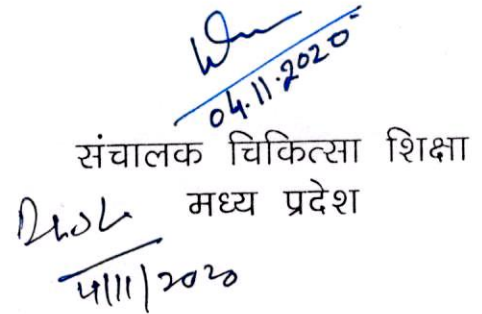 04.11.2020
संचालक चिकित्सा शिक्षा
मध्य प्रदेश
4/11/2020